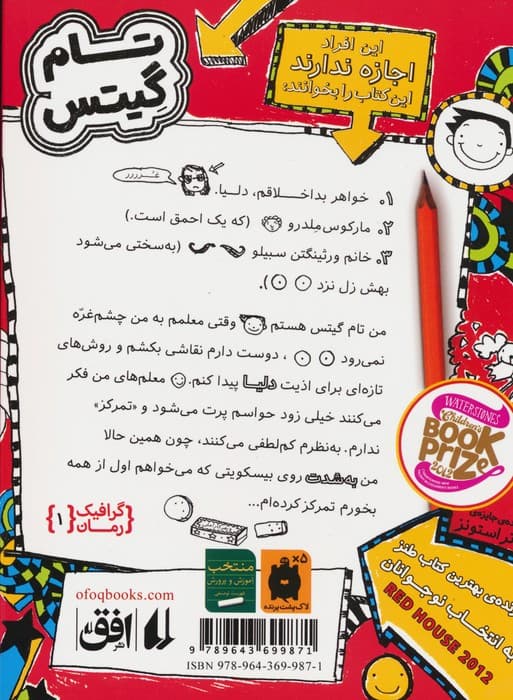 تام
گیتس
این افراد
اجازه ندارند
این کتاب را بخوانند:
۱. خواهر بداخلاقم، دلیا.
غـُـررررر
۲. مارکوس مِلدرو (که یک احمق است.)
۳. خانم ورثینگتن سبیلو (به‌سختی می‌شود
بهش زل نزد).
من تام گیتس هستم وقتی معلمم به من چشم‌غرّه
نمی‌رود ، دوست دارم نقاشی بکشم و روش‌های
تازه‌ای برای اذیت دلیا پیدا کنم. معلم‌های من فکر
می‌کنند خیلی زود حواسم پرت می‌شود و «تمرکز»
ندارم. به‌نظرم کم‌لطفی می‌کنند، چون همین حالا
من به‌شدت روی بیسکویتی که می‌خواهم اول از همه
بخورم تمرکز کرده‌ام...
گرافیک
رمان
{۱}
WATERSTONES
Children's
BOOK
PRIZE
2012
ه‌ی جایزه‌ی
تراستونز
نده‌ی بهترین کتاب طنز
به انتخاب نوجوانان
RED HOUSE 2012
ofoqbooks.com
نشر افق
منتخب
آموزش و پرورش
فهرست توصیفی
۵×
لاک‌پشت پرنده
9 789643 699871
ISBN 978-964-369-987-1